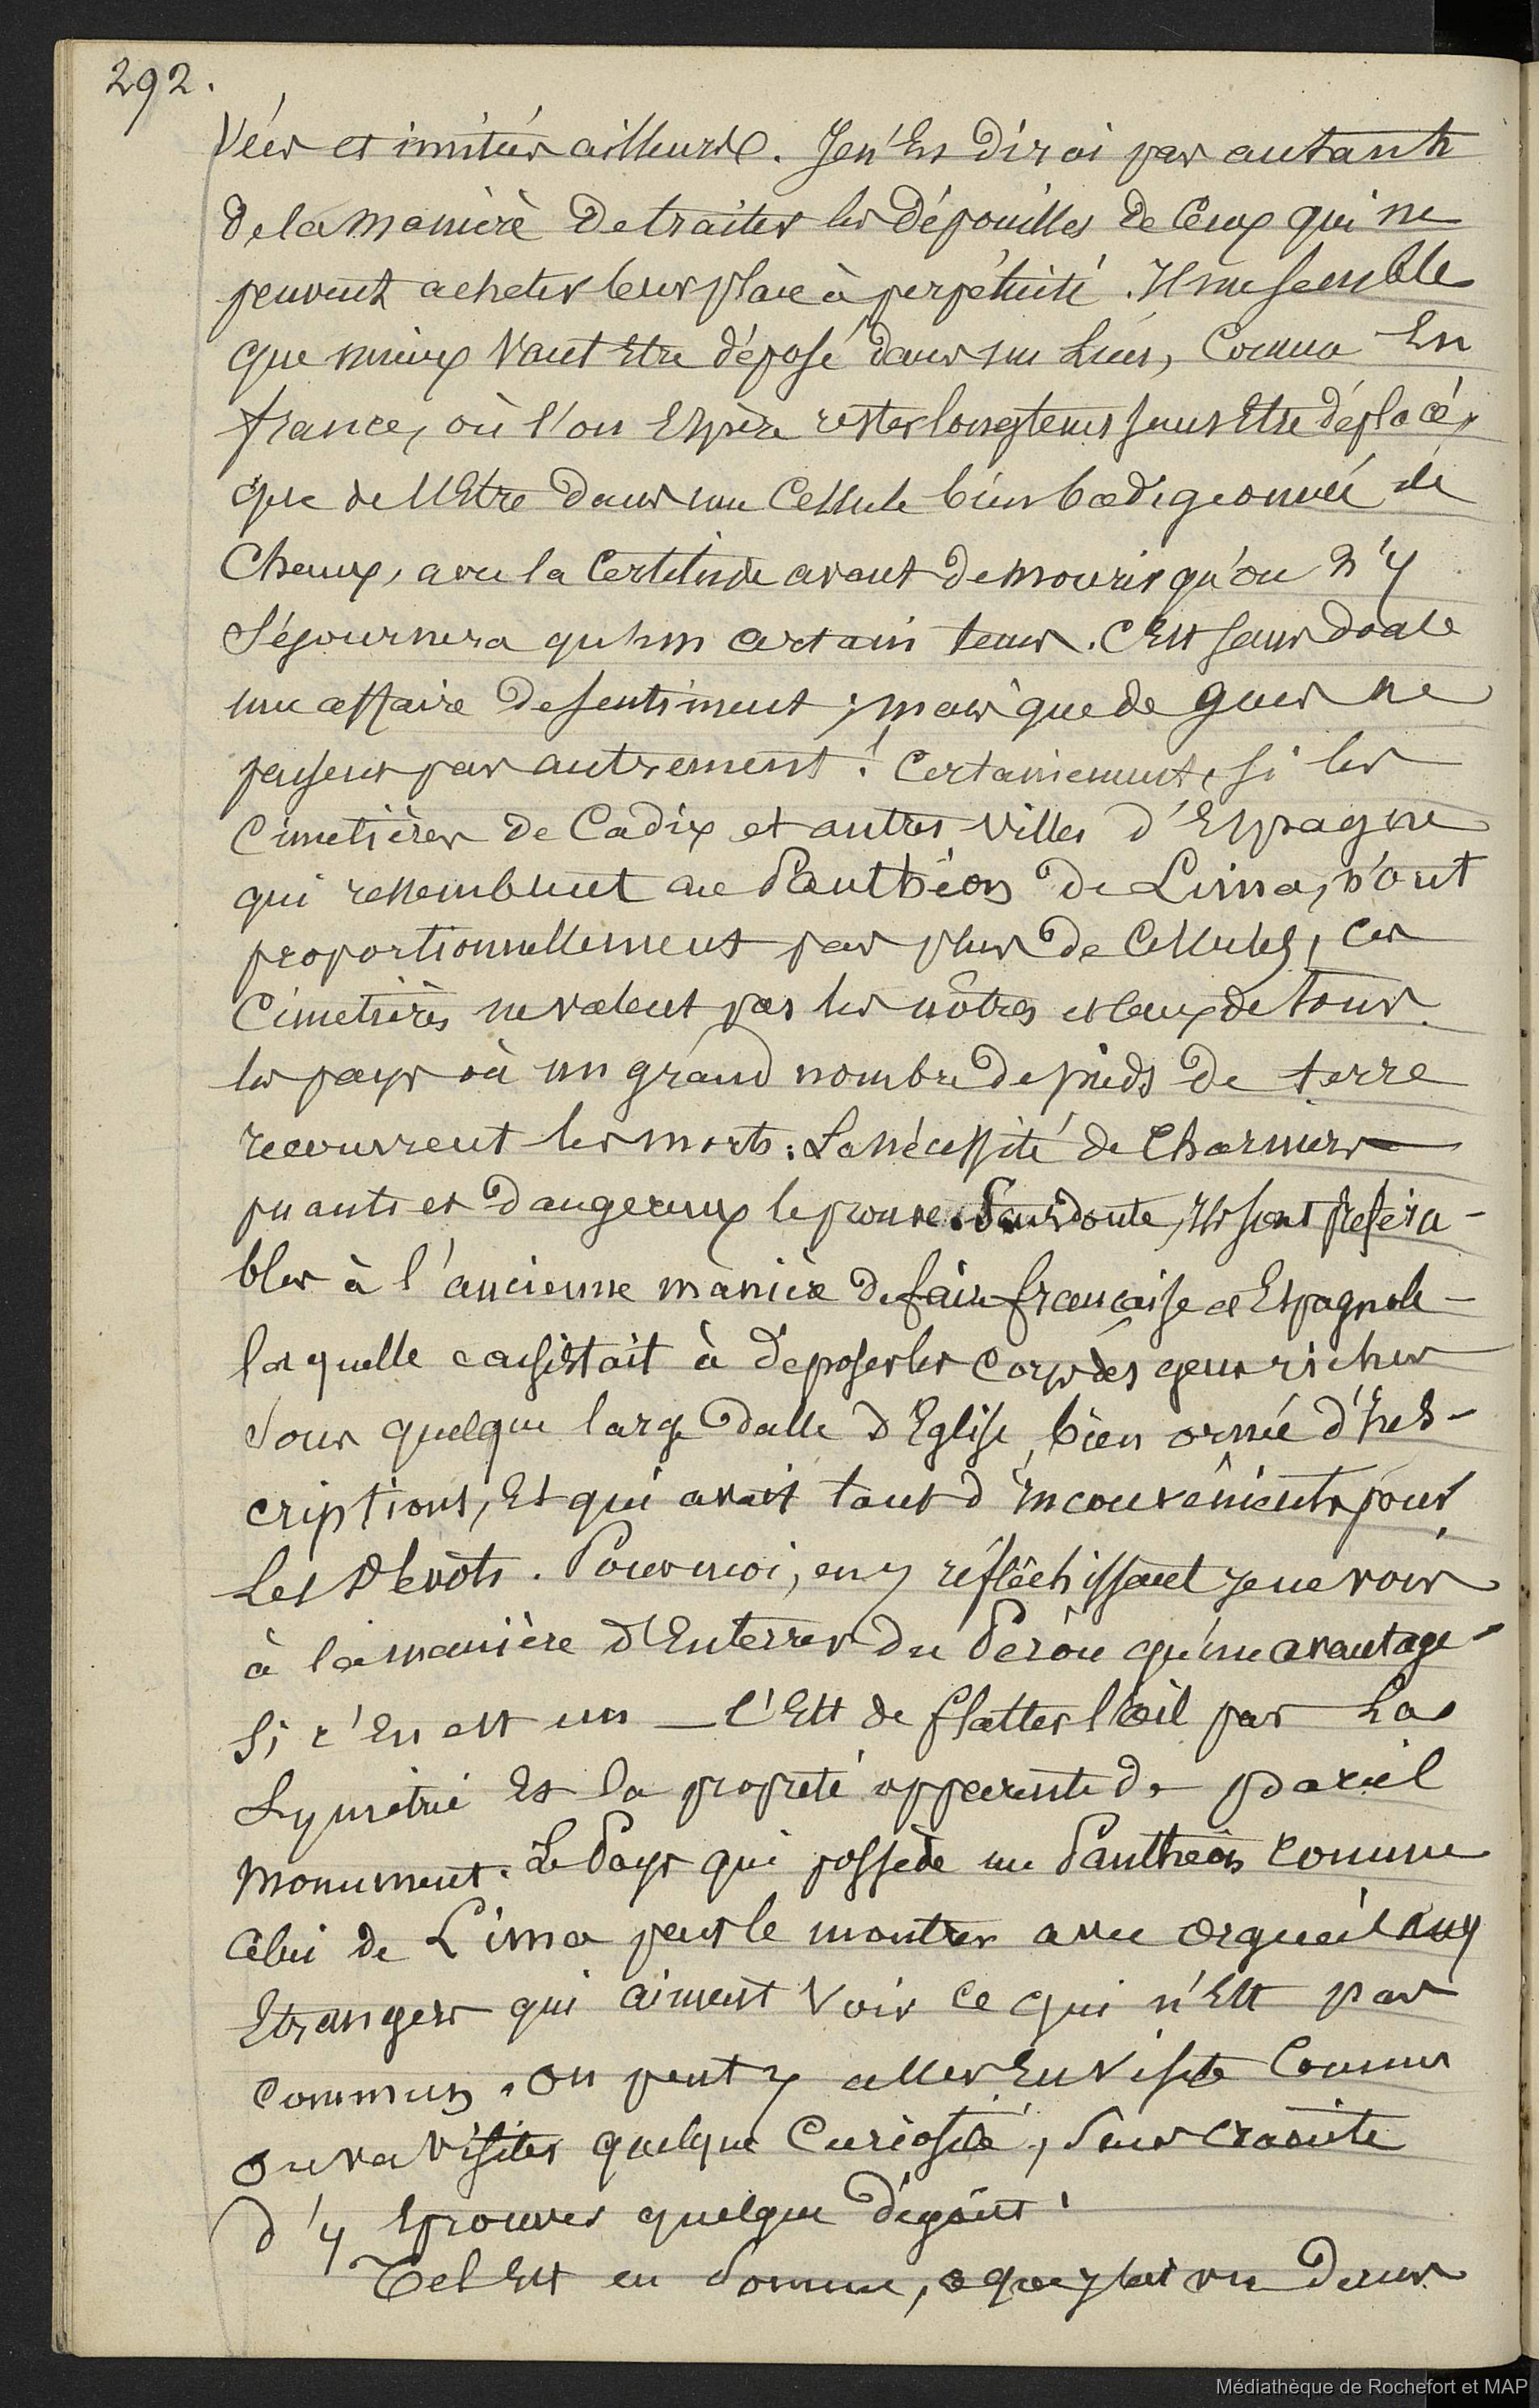 292.
vées et imitées ailleurs. Je n'En dirai pas autant
de la manière de traiter les dépouilles de Ceux qui ne
peuvent acheter leur place à perpétuité. Il me semble
que mieux vaut Etre déposé dans un Lieu, Comme En
france, où l'on Espère rester longtems sans Etre déplacé,
que de l'Etre dans une Cellule bien badigeonnée de
Chaux, avec la Certitude avant de mourir qu'on n'y
séjournera qu'un certain tems. C'Est sans doute
une affaire de sentiment ; mais que de gens ne
pensent pas autrement ! Certainement, si les
Cimetières de Cadix et autres villes d'Espagne
qui ressemblent au Panthéon de Lima, n'ont
proportionnellement pas plus de Cellules, Ces
Cimetières ne valent pas les nôtres et Ceux de tous
les pays où un grand nombre de pieds de terre
recouvrent les morts : La nécessité de Charniers
puants et dangereux le prouve. Sans doute, Ils sont préféra-
bles à l'ancienne manière de faire française et Espagnole
laquelle consistait à déposer les corps des gens riches
sous quelque large dalle d'Eglise, bien ornée d'Ins-
criptions, Et qui avait tant d'inconvénients pour
Les dévots. Pour moi, en y réfléchissant je ne vois
à la manière d'Enterrer du Pérou qu'un avantage
si c'En est un — C'Est de flatter l'œil par La
Symétrie Et la propreté apparente de pareil
monument. Le Pays qui possède un Panthéon Comme
Celui de Lima peut le montrer avec orgueil aux
Etrangers qui aiment voir ce qui n'Est pas
commun. On peut y aller En visite Comme
on va visiter quelque Curiosité, sans crainte
d'y Eprouver quelque dégoût.
Tel Est en somme, ce que j'ai vu dans
Médiathèque de Rochefort et MAP